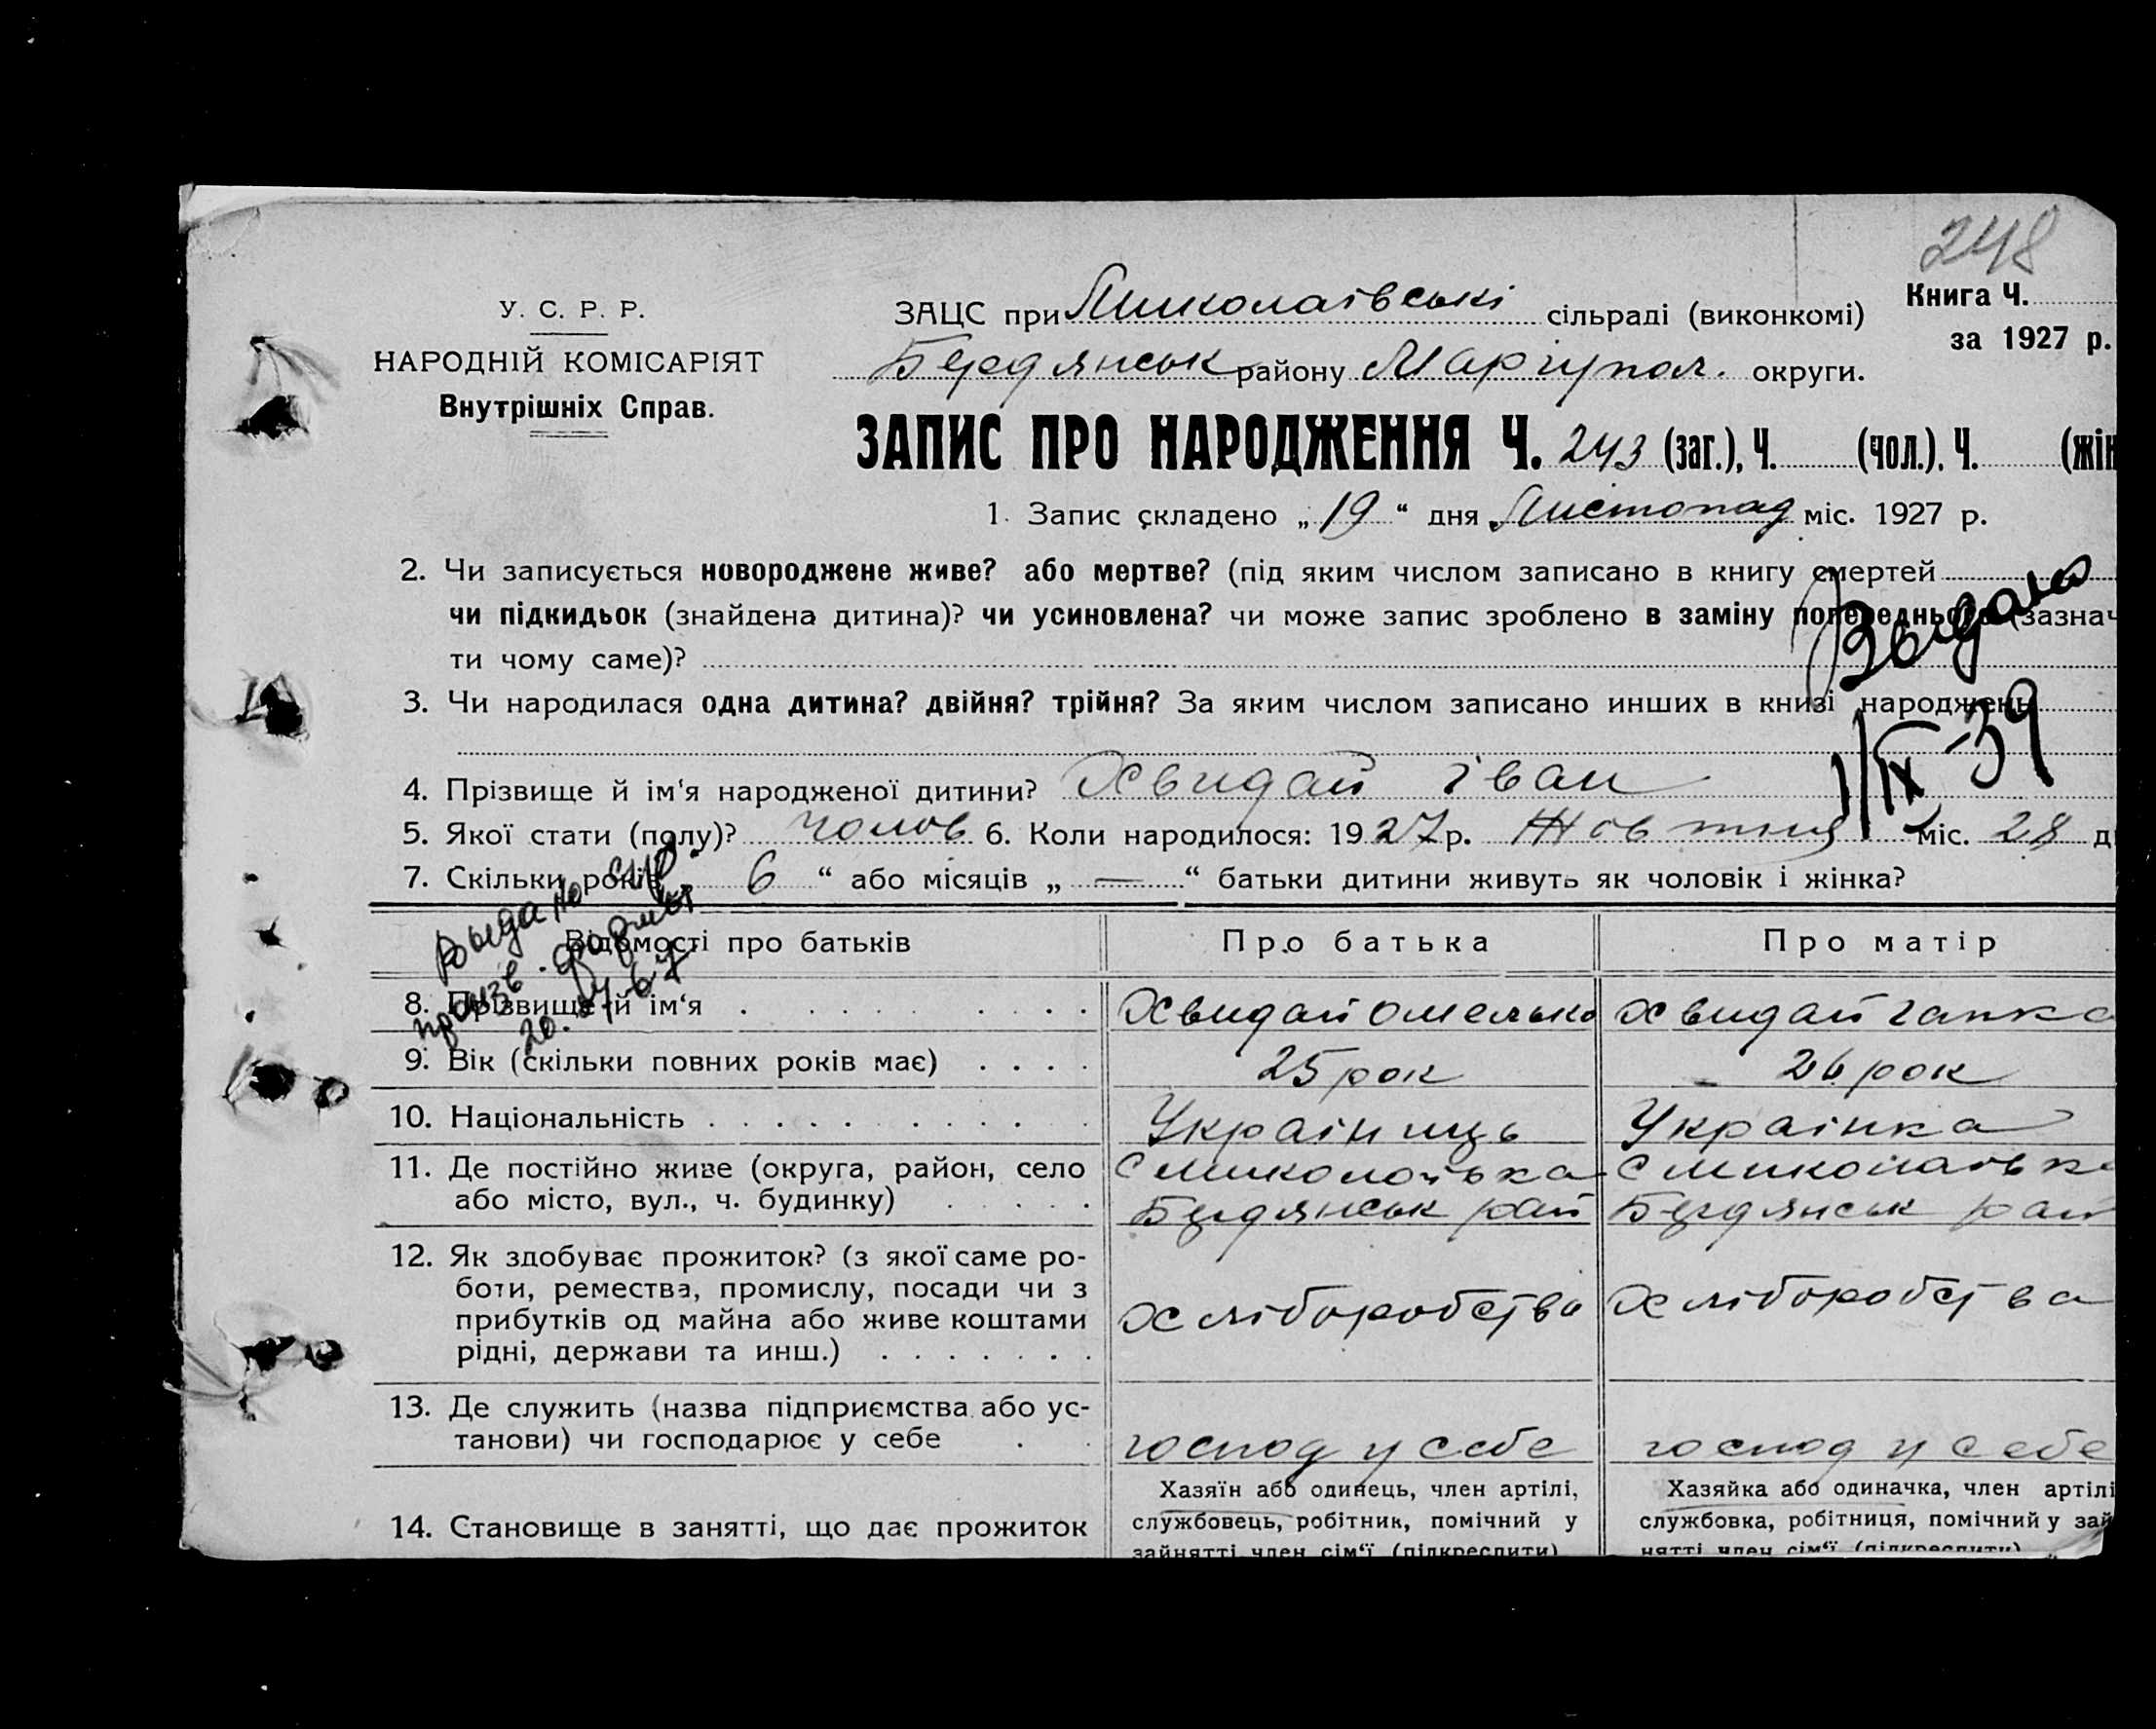 248
У. С. Р. Р.
НАРОДНІЙ КОМІСАРІЯТ
Внутрішніх Справ.
ЗАЦС при Миколаївські сільраді (виконкомі)
Бердянськ району Маріупол. округи.
Книга Ч.
за 1927 р.
ЗАПИС ПРО НАРОДЖЕННЯ Ч. 243 (заг.), Ч. (чол.). Ч. (жін
1. Запис складено „ 19 “ дня Листопад міс. 1927 р.
2. Чи записується новороджене живе? або мертве? (під яким числом записано в книгу смертей
чи підкидьок (знайдена дитина)? чи усиновлена? чи може запис зроблено в заміну попереднього (зазнач
ти чому саме)?
Выдано
3. Чи народилася одна дитина? двійня? трійня? За яким числом записано инших в книзі народжень
1/IX-39
4. Прізвище й ім‘я народженої дитини? Хвидай іван
5. Якої стати (полу)? чолов 6. Коли народилося: 1927 р. Жовтня міс. 28 д
7. Скільки років 6 “ або місяців „ — “ батьки дитини живуть як чоловік і жінка?
Выдано
Відомості про батьків Про батька Про матір
8. Прізвище й ім‘я Хвидай Омелько Хвидай Ганка
9. Вік (скільки повних років має) 25 рок 26 рок
10. Національність Украінць Украінка
11. Де постійно живе (округа, район, село с миколоівка с миколаівк
або місто, вул., ч. будинку) Бердянськ рай Бердянськ рай
12. Як здобуває прожиток? (з якої саме ро-
боти, ремества, промислу, посади чи з
прибутків од майна або живе коштами
рідні, держави та инш.) хліборобства хліборобства
13. Де служить (назва підприємства або ус-
танови) чи господарює у себе господ у себе господ у себе
14. Становище в занятті, що дає прожиток
Хазяїн або одинець, член артілі,
службовець, робітник, помічний у
зайнятті член сім‘ї (підкреслити)
Хазяйка або одиначка, член артілі
службовка, робітниця, помічний у зай
нятті член сім‘ї (підкреслити)